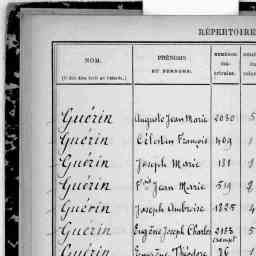 RÉPERTOIRE
NOM. PRÉNOMS ET SURNOMS. NUMÉROS
Guérin Auguste Jean Marie 2030 5
Guérin Célestin François 409 1
Guérin Joseph Marie 131 1
Guérin Jean Marie 519 2
Guérin Joseph Ambroise 1825 4
Guérin Eugène Joseph Charles 2183 5
exempt
Guérin Théodore 76 1